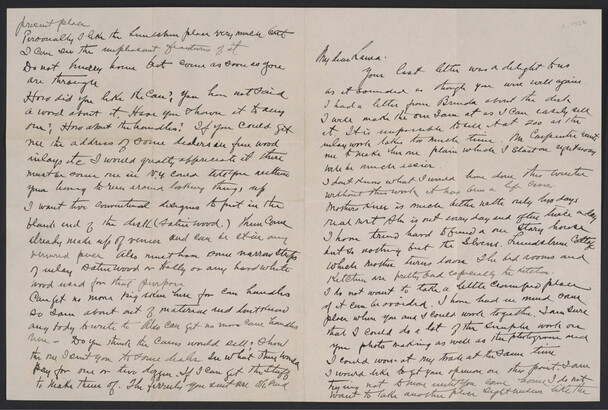 My dear Laura.
Your last letter was a delight to us
as it sounded as though you were well again
I had a letter from Brinda about the desk
I will make the one I am at as I can easily sell
it. It is impossible to sell that size as the
inlay work takes too much time. Mr Carpenter wants
me to make him one plain which I start on right away
will be much easier
I don't know what I would have done this winter
without this work it has been a life saver.
Mothers knee is much better walks only has days
real bad She is out every day and often twice a day
I have tried hard to find a one story house
but so nothing but the Stevens. Lundstrum Cottage
which mother turns down The bed rooms and
Kitchen are pretty bad especially the kitchen.
I do not want to take a little cramped place
if it can be avoided. I have had in mind some
place where you and I could work together. I am sure
that I could do a lot of the simple work on
your photo making as well as the photogravure and
I could work at my trade at the same time
I would like to get your opinion on this point. I am
trying not to move until you come home I do not
want to take another place right now like the
present place
Personally I like the Lundstrum place very much but
I can see the unpleasant features of it
Do not hurry home but come as soon as you
are through
How did you like the Cane? You have not said
a word about it. Have you shown it to any
one? How about the handles? If you could get
me the address of some dealers in fine wood
inlays etc I would greatly appreciate it there
must be some one in N.Y. could
you having to run around looking things up
I want two conventional designs to put in the
blank end of the desk (Satin wood.) These come
already made up of veneer and can be set in any
veneered piece Also must have some narrow strips
of inlay Satin wood or Holly or any hard white
wood used for that purpose
Can get no more big wire here for cane handles
so I am about out of material and don't know
any body to write to Also can get no more cane handles
here - Do you think the Canes would sell? Show
the one I sent you to some dealer See what they would
pay for one or two dozen. If I can get the stuff
to make them of. The ferrules you sent me